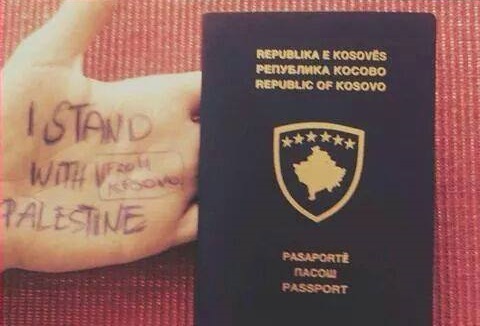 I STAND
WITH FROM
KOSOVO
PALESTINE
REPUBLIKA E KOSOVËS
РЕПУБЛИКА КОСОВО
REPUBLIC OF KOSOVO
PASAPORTË
ПАСОШ
PASSPORT